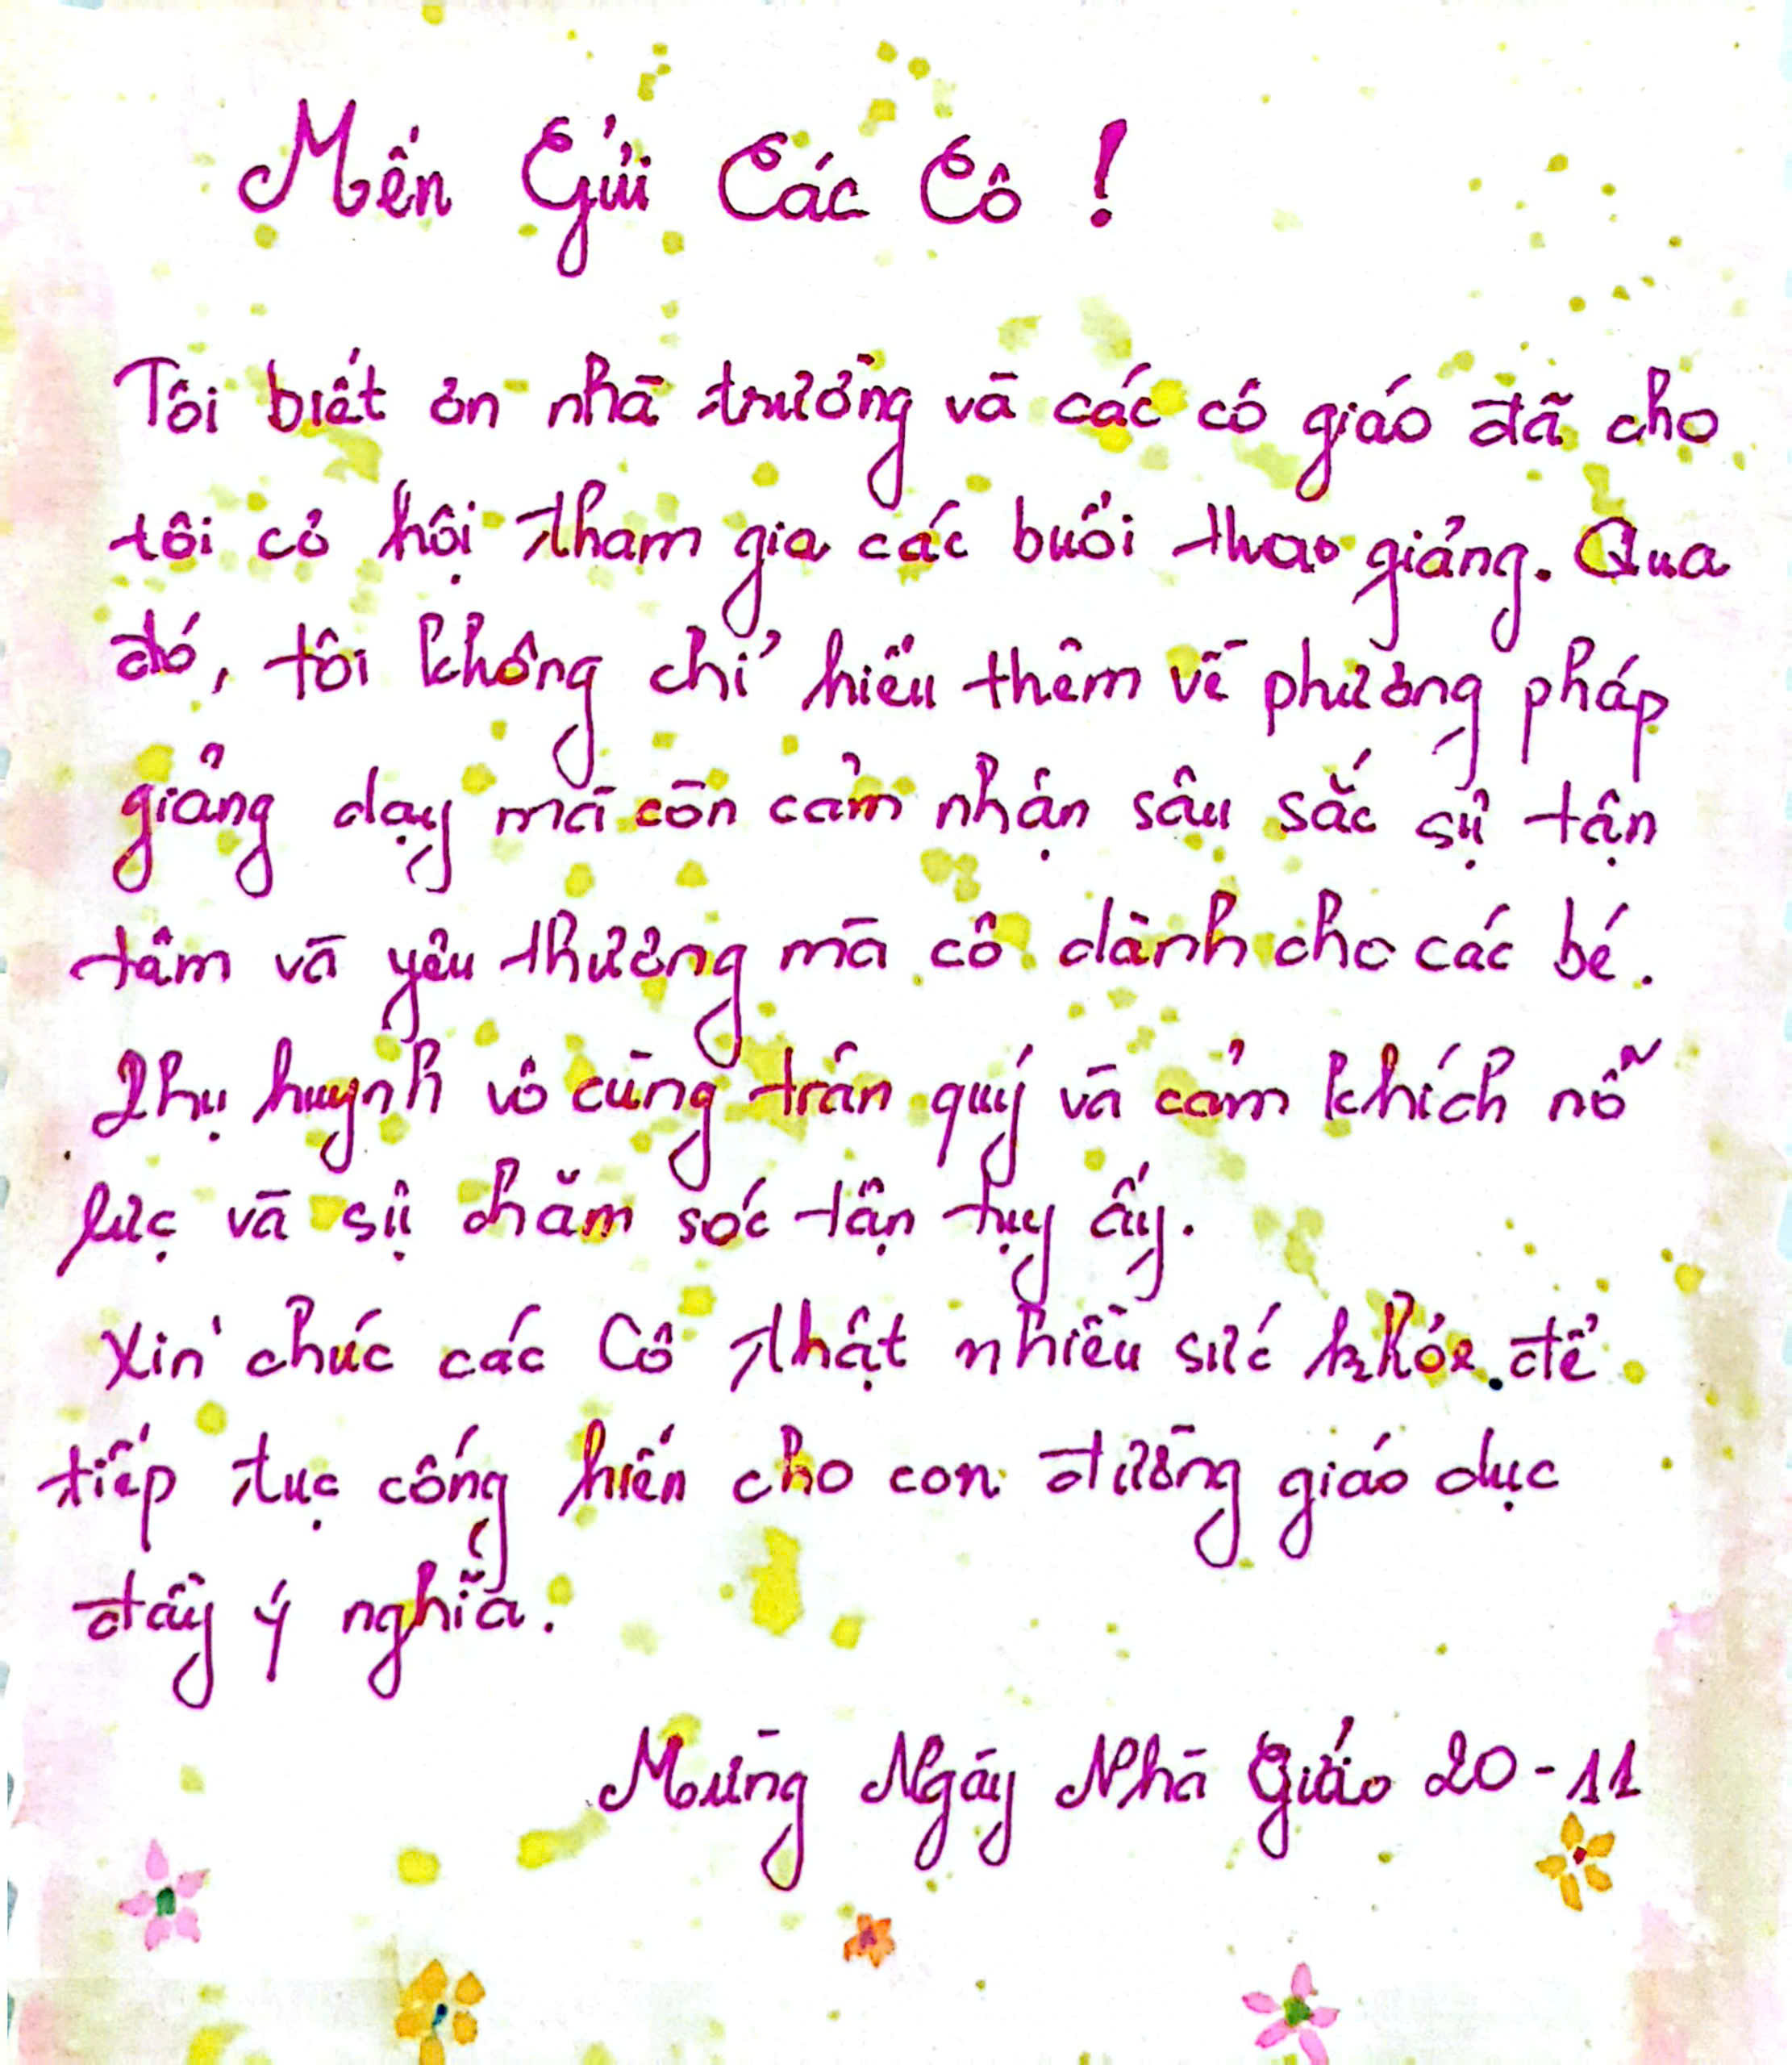 Mến Gửi Các Cô !
Tôi biết ơn nhà trường và các cô giáo đã cho
tôi cơ hội tham gia các buổi thao giảng. Qua
đó, tôi không chỉ hiểu thêm về phương pháp
giảng dạy mà còn cảm nhận sâu sắc sự tận
tâm và yêu thương mà cô dành cho các bé.
Phụ huynh vô cùng trân quý và cảm khích nỗ
lực và sự chăm sóc tận tụy ấy.
Xin chúc các Cô thật nhiều sức khỏe để
tiếp tục cống hiến cho con đường giáo dục
đầy ý nghĩa.
Mừng Ngày Nhà Giáo 20-11